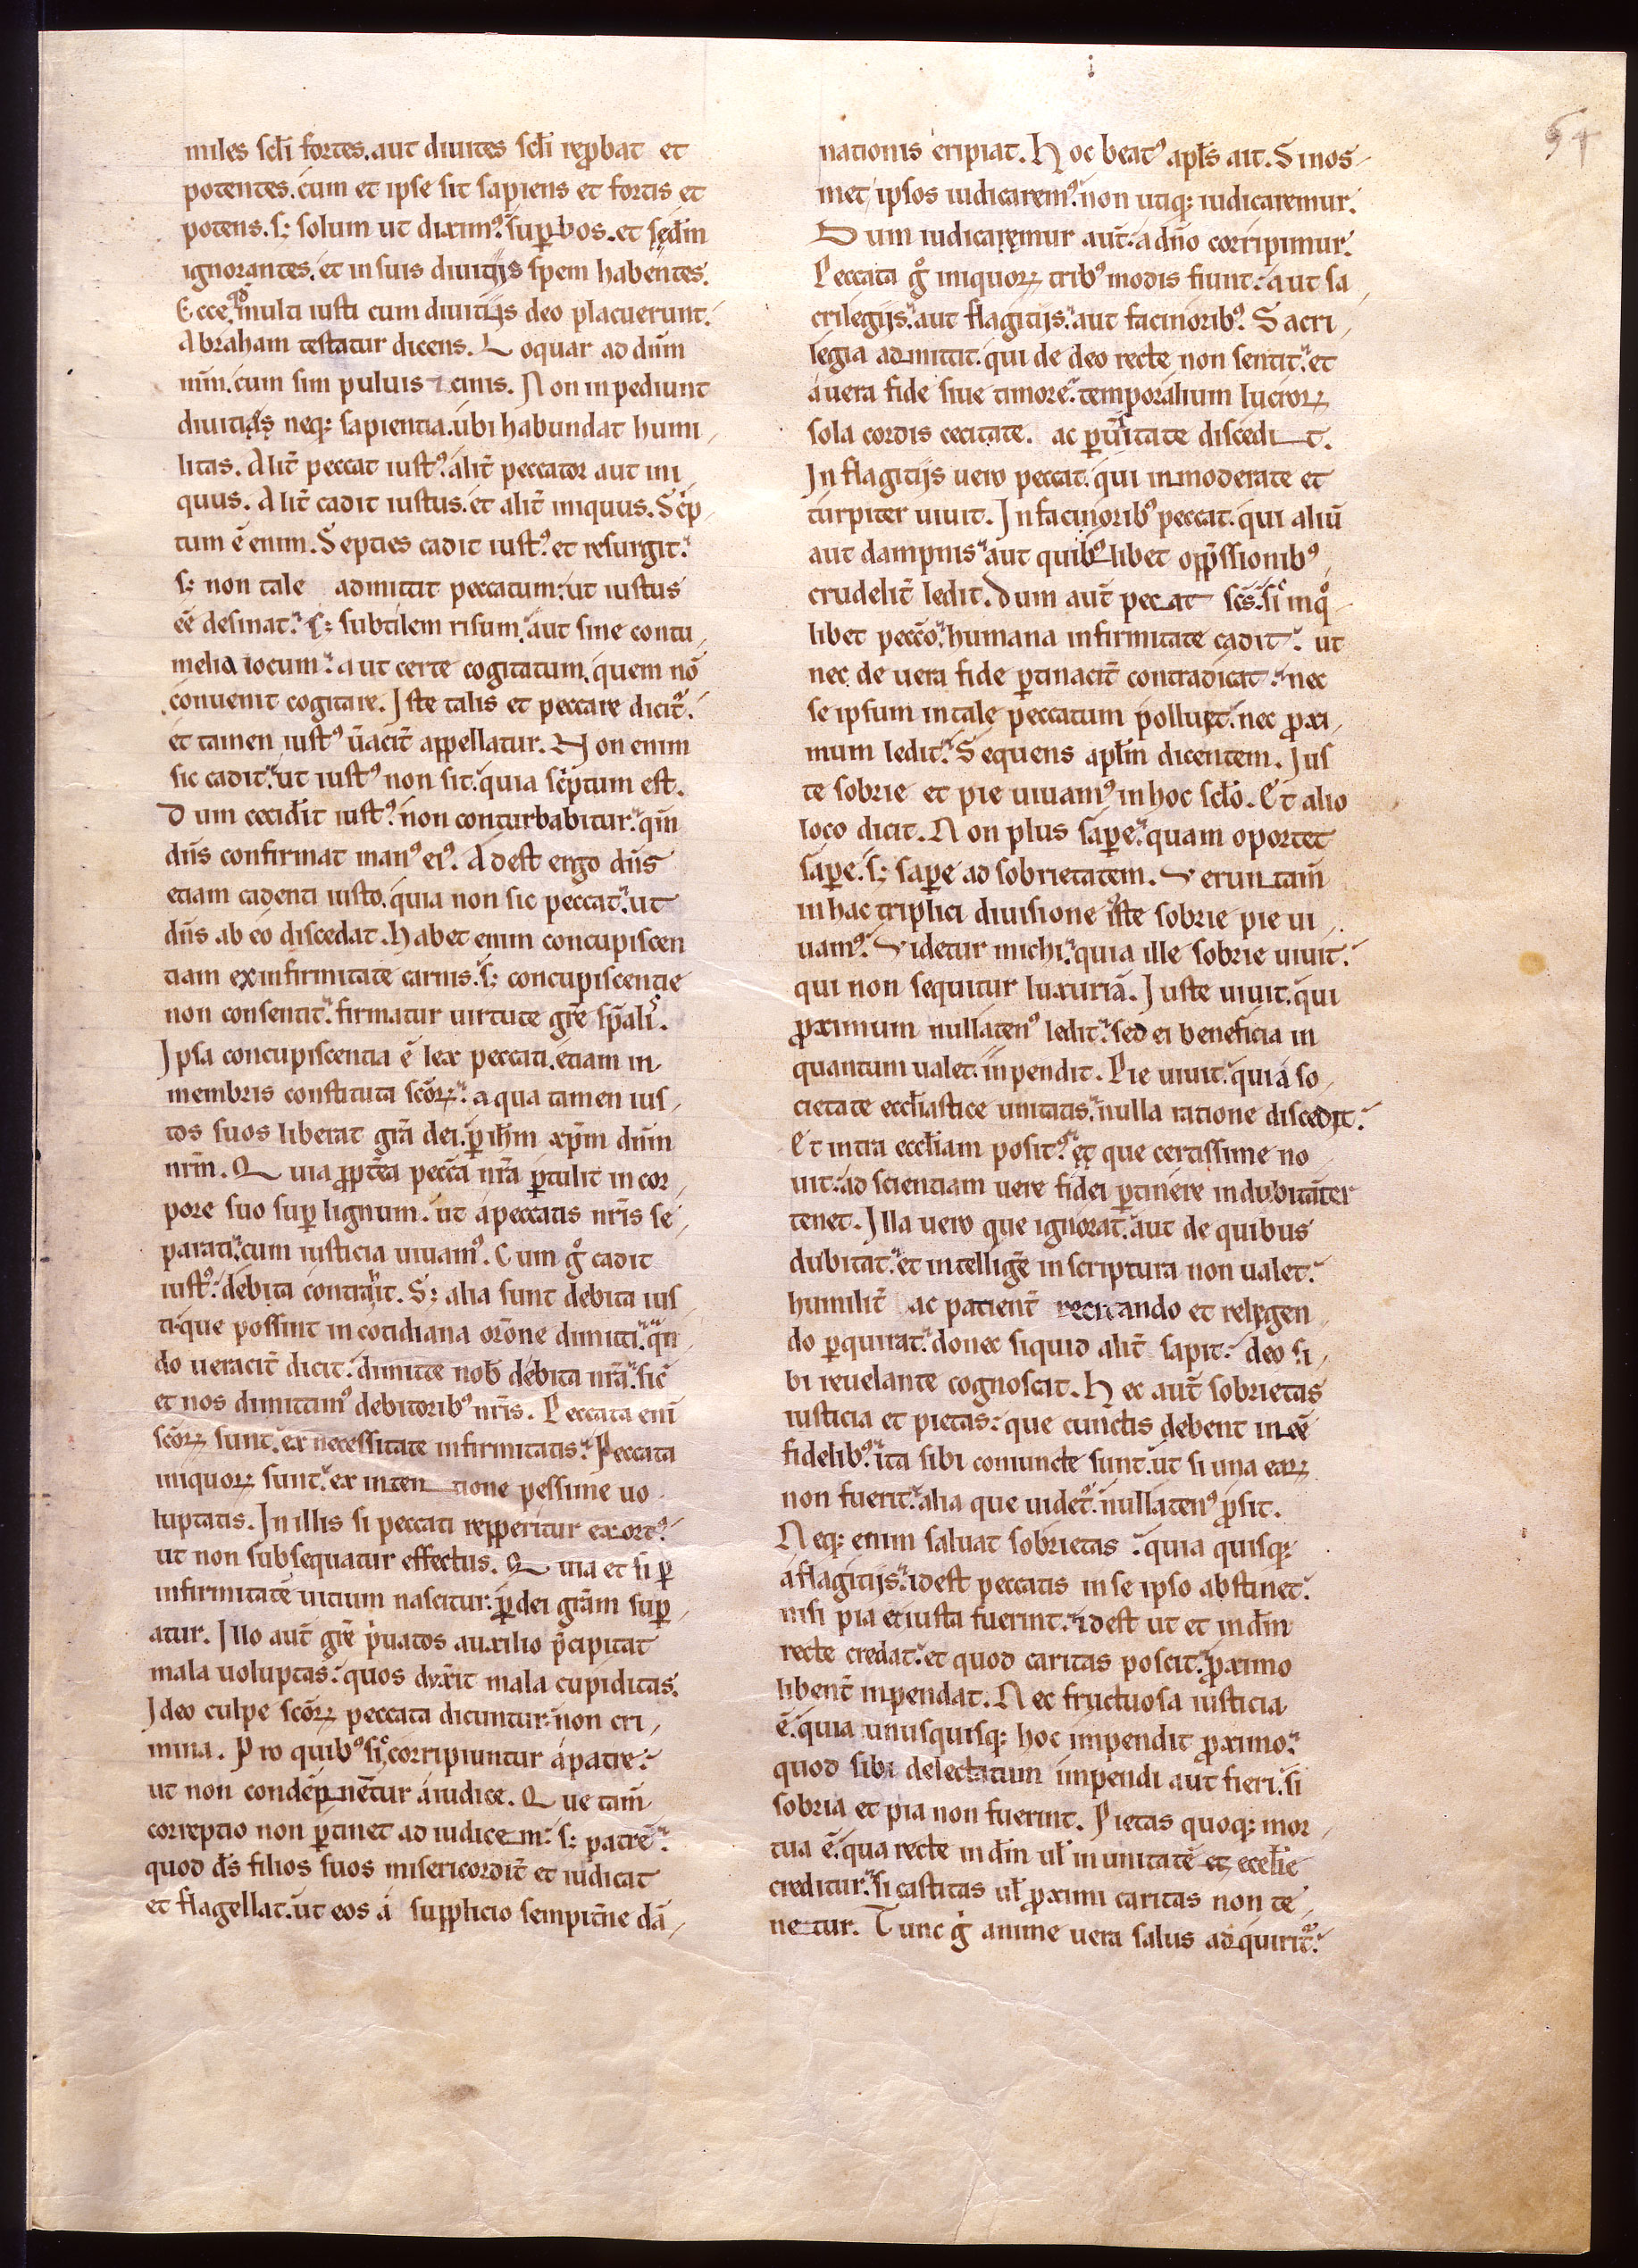 54
miles scl̄i fortes. aut diuites scl̄i rep̱bat et
potentes. cum et ipse sit sapiens et fortis et
potens. s; solum ut diximꝰ. suꝑbos. et sed̄m
ignorantes. et in suis diuitijs spem habentes.
Ecce multi iusti cum diuitijs deo placuerunt.
Abraham testatur dicens. Loquar ad dūm
mm̄. cum sim puluis ⁊ cinis. Non inpediunt
diuitias neq; sapientia. ubi habundat humi
litas. Alit̄ peccat iustꝰ. alit̄ peccator aut ini
quus. Alit̄ cadit iustus. et alit̄ iniquus. Sc̄p
tum ē enim. Septies cadit iustꝰ. et resurgit.
s; non tale admittit peccatum. ut iustus
eē desinat. s; subtilem risum. aut sine contu
melia iocum. aut certe cogitatum. quem nō
conuenit cogitare. Iste talis et peccare dicit᷑.
et tamen iustꝰ ūacit̄ appellatur. Non enim
sic cadit. ut iustꝰ non sit. quia sc̄ptum est.
Dum cecid̄it iustꝰ. non conturbabitur. qm̄
dn̄s confirmat manꝰ eiꝰ. Adest ergo dn̄s
etiam cadenti iusto. quia non sic peccat. ut
dn̄s ab eo discedat. Habet enim concupiscen
tiam ex infirmitate carnis. s; concupiscentie
non consentit. firmatur uirtute gr̄e sp̄alis.
Ipsa concupiscentia ē lex peccati. etiam in
membris constituta sc̄oꝝ. a qua tamen ius
tos suos liberat gr̄a dei. ꝑ ih̄m xp̄m dūm
nr̄m. Quia ꝓpt̄ea pecc̄a nr̄a ꝑtulit in cor
pore suo suꝑ lignum. ut a peccatis nr̄is se
parati. cum iusticia uiuamꝰ. Cum gͦ cadit
iustꝰ. debita contrahit. S; alia sunt debita ius
ti. que possint in cotidiana orōne dimitti. qn̄
do ueracit̄ dicit. dimitte nob̄ debita nr̄a. sic̄
et nos dimittimꝰ debitoribꝰ nr̄is. Peccata enī
sc̄oꝝ sunt. ex necessitate infirmitatis. Peccata
iniquoꝝ sunt. ex intentione pessime uo
luptatis. In illis si peccati repperitur exortꝰ.
ut non subsequatur effectus. Quia et si ꝑ
infirmitatē uitium nascitur. ꝑ dei grām suꝑ
atur. Illo aut̄ gr̄e pⁱuatos auxilio p̄cipitat
mala uoluptas. quos dux̄it mala cupiditas.
Ideo culpe sc̄oꝝ peccata dicuntur. non cri
mina. Pro quibꝰ sic̄ corripiuntur a patre.
ut non condēpnētur a iudice. Que tam̄
correptio non ꝑtinet ad iudicem. s; patrē.
quod d̄s filios suos misericordit̄ et iudicat
et flagellat. ut eos a supplicio sempit̄ne dā
nationis eripiat. Hoc beatꝰ apl̄s ait. Si nos
met ipsos iudicaremꝰ. non utiq; iudicaremur.
Dum iudicaremur aut̄. a dn̄o corripimur.
Peccata gͦ iniquoꝝ tribꝰ modis fiunt. aut sa
crilegijs. aut flagitijs. aut facinoribꝰ. Sacri
legia admittit. qui de deo recte non sentit. et
a uera fide siue timore. temporalium lucroꝝ
sola cordis cecitate. ac ꝑuⁱsitate discedit.
In flagitijs uero peccat. qui inmoderate et
turpiter uiuit. In facinoribꝰ peccat. qui aliū
aut dampnis. aut quibꝰlibet opp̄ssionibꝰ
crudelit̄ ledit. Dum aut̄ peccat sc̄s. sic̄ in qͦ
libet pecc̄o. humana infirmitate cadit. ut
nec de uera fide ꝑtinacit̄ contradicat. nec
se ipsum in tale peccatum polluet. nec ꝓxi
mum ledit. Sequens apl̄m dicentem. Ius
te sobrie et pie uiuamꝰ in hoc scl̄o. Et alio
loco dicit. Non plus saꝑe. quam oportet
saꝑe. s; saꝑe ad sobrietatem. Veruntam̄
in hac triplici diuisione iste sobrie pie ui
uamꝰ. Videtur michi. quia ille sobrie uiuit.
qui non sequitur luxuriā. Iuste uiuit. qui
ꝓximum nullatenꝰ ledit. sed ei beneficia in
quantum ualet. inpendit. Pie uiuit. quia a so
cietate eccl̄iastice unitatis. nulla ratione discedit.
Et intra eccl̄iam positꝰ. et que certissime no
uit. ad scientiam uere fidei ꝑtinere indubitāter
tenet. Illa uero que ignorat. aut de quibus
dubitat. et intelliḡe in scriptura non ualet.
humilit̄ ac patient̄ recitando et relegen
do ꝑquirat. donec siquid alit̄ sapit. deo si
bi reuelante cognoscat. Hec aut̄ sobrietas
iusticia et pietas. que cunctis debent inēe
fidelibꝰ. ita sibi coniuncte sunt. ut si una eaꝝ
non fuerit. alia que uidet᷑. nullatenꝰ ꝓsit.
Neq; enim saluat sobrietas. quia quisq;
a flagitijs. idest peccatis in se ipso abstinet.
nisi pia et iusta fuerint. idest ut et in dm̄
recte credat. et quod caritas poscit. ꝓximo
libent̄ inpendat. Nec fructuosa iusticia
ē. quia unusquisq; hoc impendit ꝓximo.
quod sibi delectatum impendi aut fieri. si
sobria et pia non fuerint. Pietas quoq; mor
tua ē. qua recte in dm̄ ul̄ in unitatē et eccl̄ie
creditur. si castitas ul̄ ꝓximi caritas non te
netur. Tunc gͦ anime uera salus adquirit᷑.